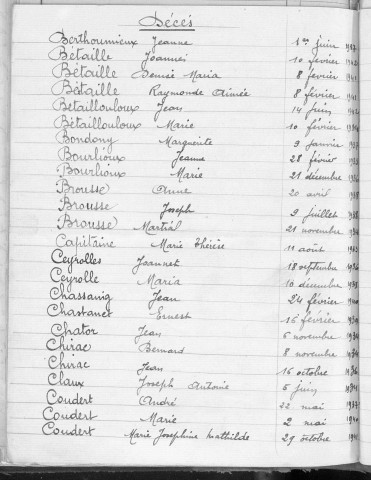 Décés
Berthoumieux Jeanne 1er juin
Bétaille Joannés 10 février
Bétaille Denise Maria 8 février
Bétaille Raymonde Aimée 8 février
Bétaillouloux Jean 14 juin
Bétaillouloux Marie 10 février
Bondony Marguerite 9 janvier
Bourlioux Jeanne 28 février
Bourlioux Marie 21 décembre
Brousse Anne 20 avril
Brousse Joseph 9 juillet
Brousse Martial 21 novembre
Capitaine Marie Thérèse 11 août
Ceyrolles Joannet 18 septembre
Ceyrolle Maria 10 décembre
Chassaing Jean 24 février
Chastanet Ernest 16 février
Chator Jean 6 novembre
Chirac Bernard 8 novembre
Chirac Jean 16 octobre
Claux Joseph Antoine 5 juin
Coudert André 22 mai
Coudert Marie 2 mai
Coudert Marie Josephine Mathilde 29 octobre